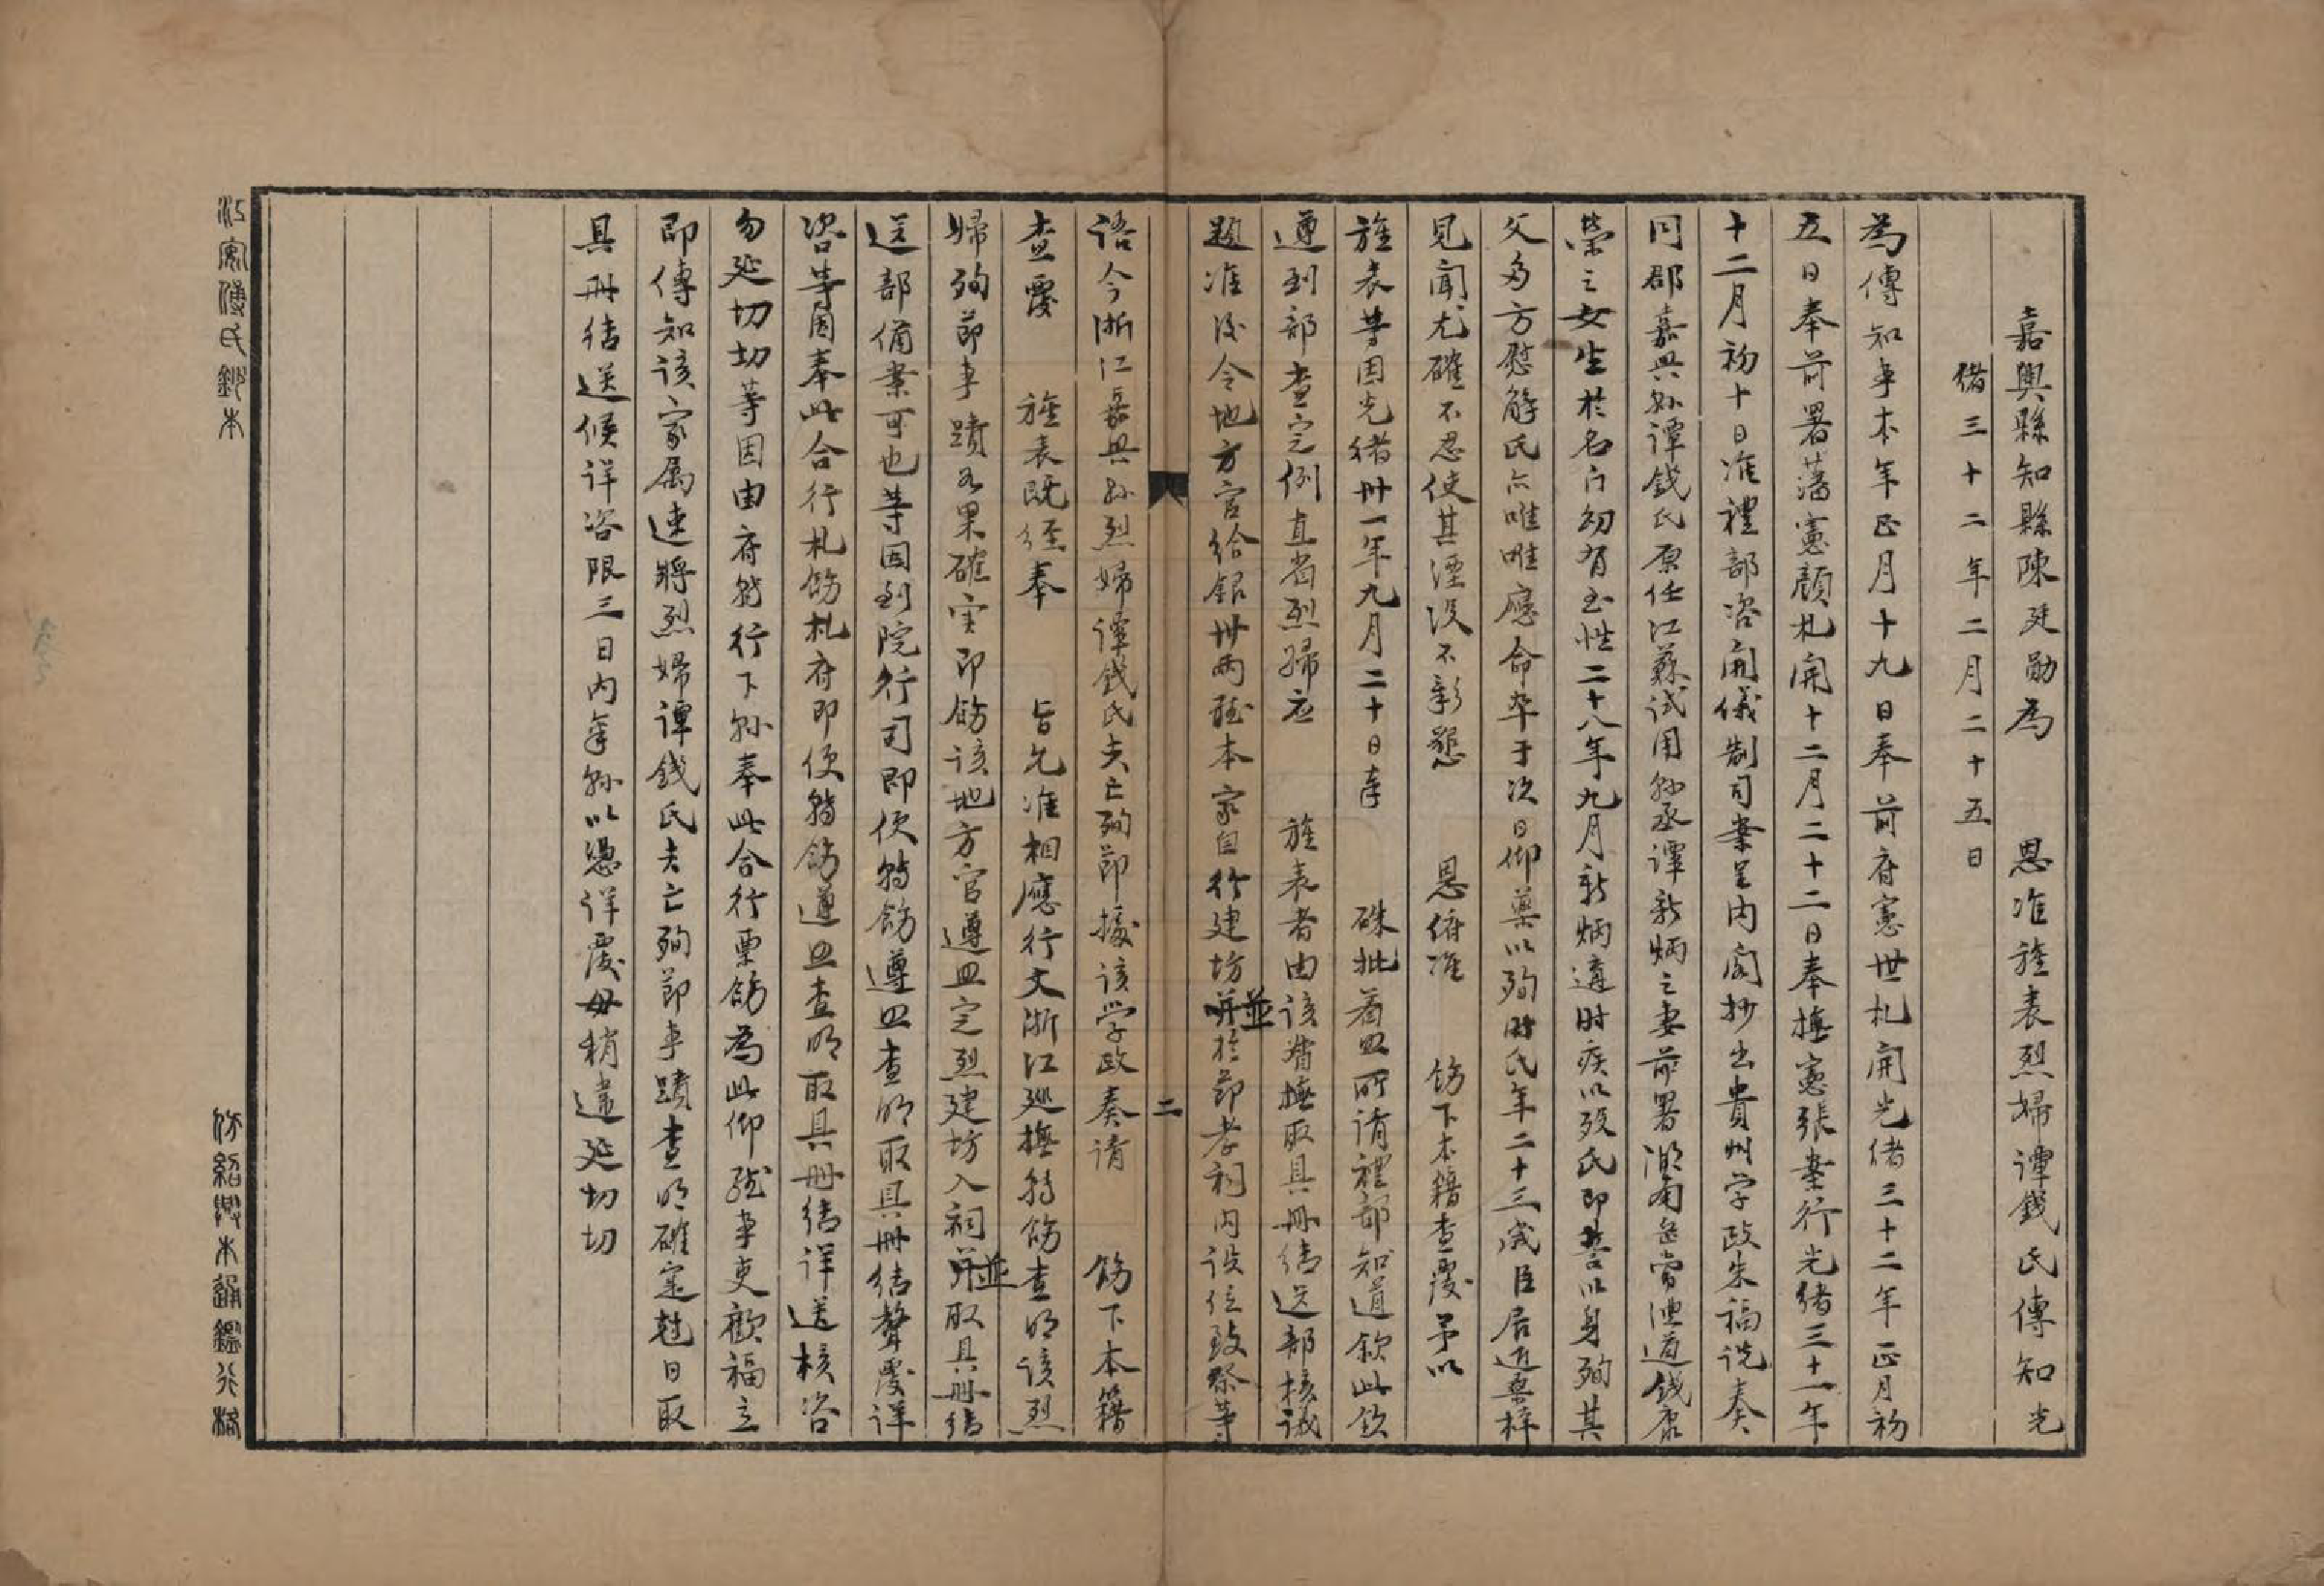 嘉興縣知縣陳廷勛為　恩准旌表烈婦譚錢氏傳知光
緒三十二年二月二十五日
為傳知事本年正月十九日奉前府憲世札開光緒三十二年正月初
五日奉前署藩憲顏札開十二月二十二日奉撫憲張案行光緒三十一年
十二月初十日准禮部咨開儀制司案呈內閣抄出貴州学政朱福詵奏
同郡嘉興縣譚錢氏原任江蘇試用縣丞譚新炳之妻前署湖南岳常澧道錢康
榮之女生於名门幼有至性二十八年九月新炳遘时疾以殁氏即誓以身殉其
父多方慰解氏亦唯唯應命卒于次日仰藥以殉时氏年二十三歲臣居近桑梓
見聞尤確不忍使其湮没不彰懇　恩俯准　飭下本籍查覆予以
旌表等因光緒卅一年九月二十日奉　硃批着照所请禮部知道欽此欽
遵到部查定例直省烈婦应　旌表者由该督撫取具冊结送部核議
題准後令地方官给銀卅兩聽本家自行建坊並於節孝祠内设位致祭等
语今浙江嘉興縣烈婦譚錢氏夫亡殉節據该学政奏请　飭下本籍
查覆　旌表既经奉　旨允准相應行文浙江巡撫转飭查明该烈
婦殉節事蹟如果確实即飭该地方官遵照定烈建坊入祠並取具冊结
送部備案可也等因到院行司即便转飭遵照查明取具冊结聲覆详
咨等因奉此合行札飭札府即便转飭遵照查明取具冊结详送核咨
勿延切切等因由府转行下縣奉此合行票飭為此仰该事吏歡福立
即傳知该家属速將烈婦譚錢氏夫亡殉節事蹟查明確寔尅日取
具冊结送候详咨限三日内奉縣以憑详覆毋稍違延切切
二
江安傅氏鈔本
仿紹興本通鑑行格